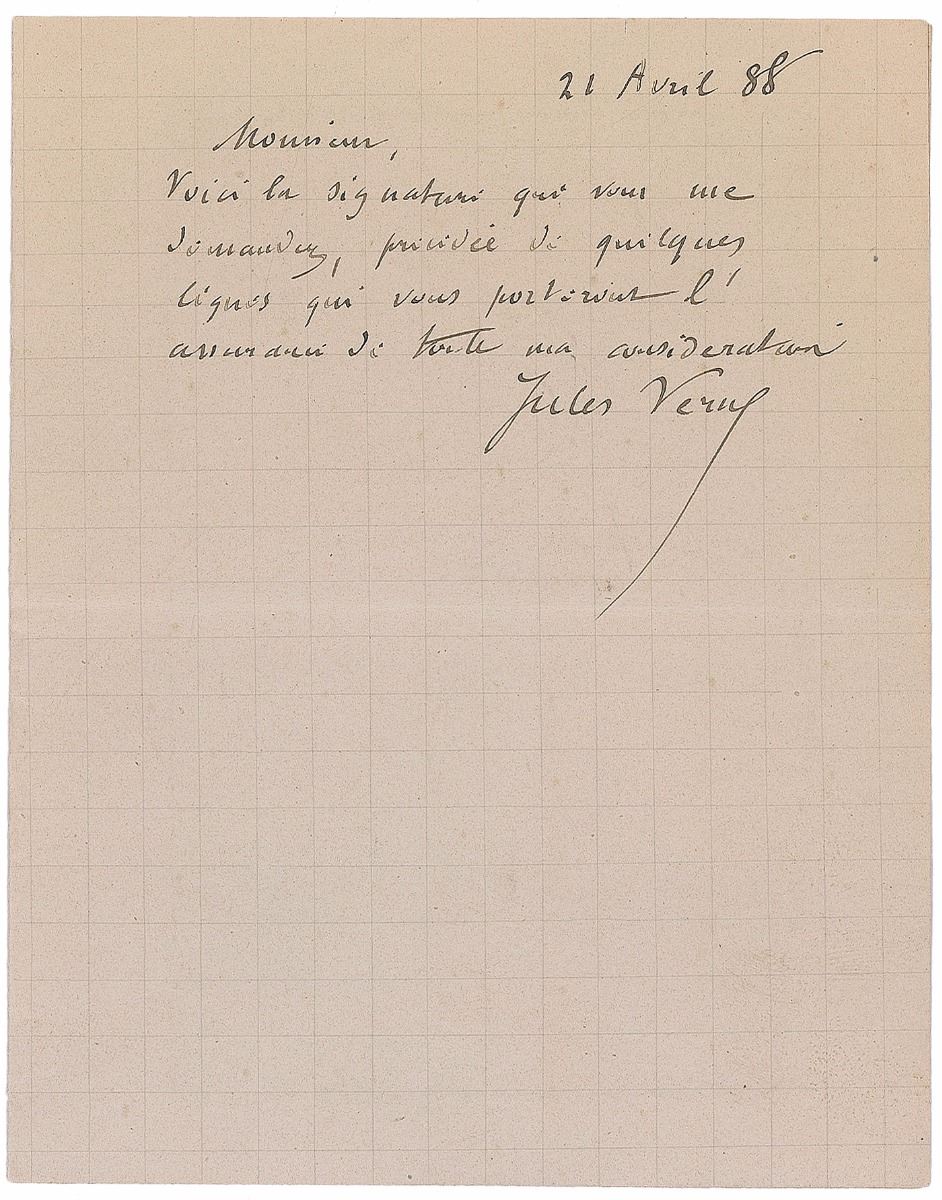 21 Avril 88
Monsieur,
Voici la signature que vous me
demandez, précédée de quelques
lignes qui vous porteront l'
assurance de toute ma considération
Jules Verne